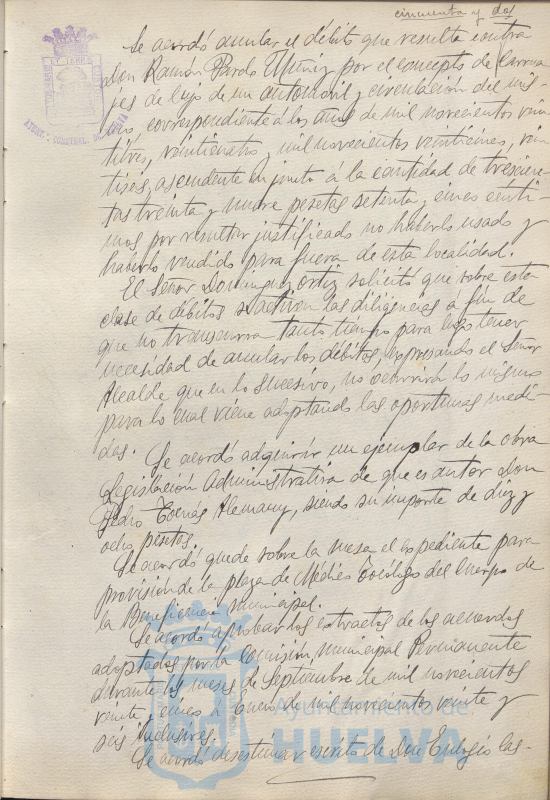 cincuenta y dos
Se acordó anular el débito que resulta contra
don Ramón Pardo por el concepto de Carrua
jes de lujo de un automóvil y circulación del mis-
mo, correspondiente á los años de mil novecientos vein
titres, veinticuatro, mil novecientos veinticinco, vein
tiseis, ascendente en junto á la cantidad de trescien
tas treinta y nueve pesetas setenta y cinco cénti-
mos por resultar justificado no haberlo usado y
haberlo vendido para fuera de esta localidad.
El Señor Dominguez Ortiz solicitó que sobre esta
clase de débitos se activen las diligencias á fin de
que no transcurra tanto tiempo para luego tener
necesidad de anular los débitos, expresando el Señor
Alcalde que en lo sucesivo, no ocurrirá lo mismo
para lo cual viene adoptando las oportunas medi-
das. Se acordó adquirir un ejemplar de la obra
Legislación Administrativa de que es autor Don
Pedro Alemany, siendo su importe de diez y
ocho pesetas.
Se acordó quede sobre la mesa el expediente para
provisión de la plaza de Médico Tocólogo del Cuerpo de
la Beneficencia municipal.
Se acordó aprobar los extractos de los acuerdos
adoptados por la Comisión municipal Permanente
durante los meses de Septiembre de mil novecientos
veinte y cinco á Enero de mil novecientos veinte y
seis inclusives.
Se acordó desestimar escrito de Don Eulogio Cas-
Ayuntamiento de
HUELVA